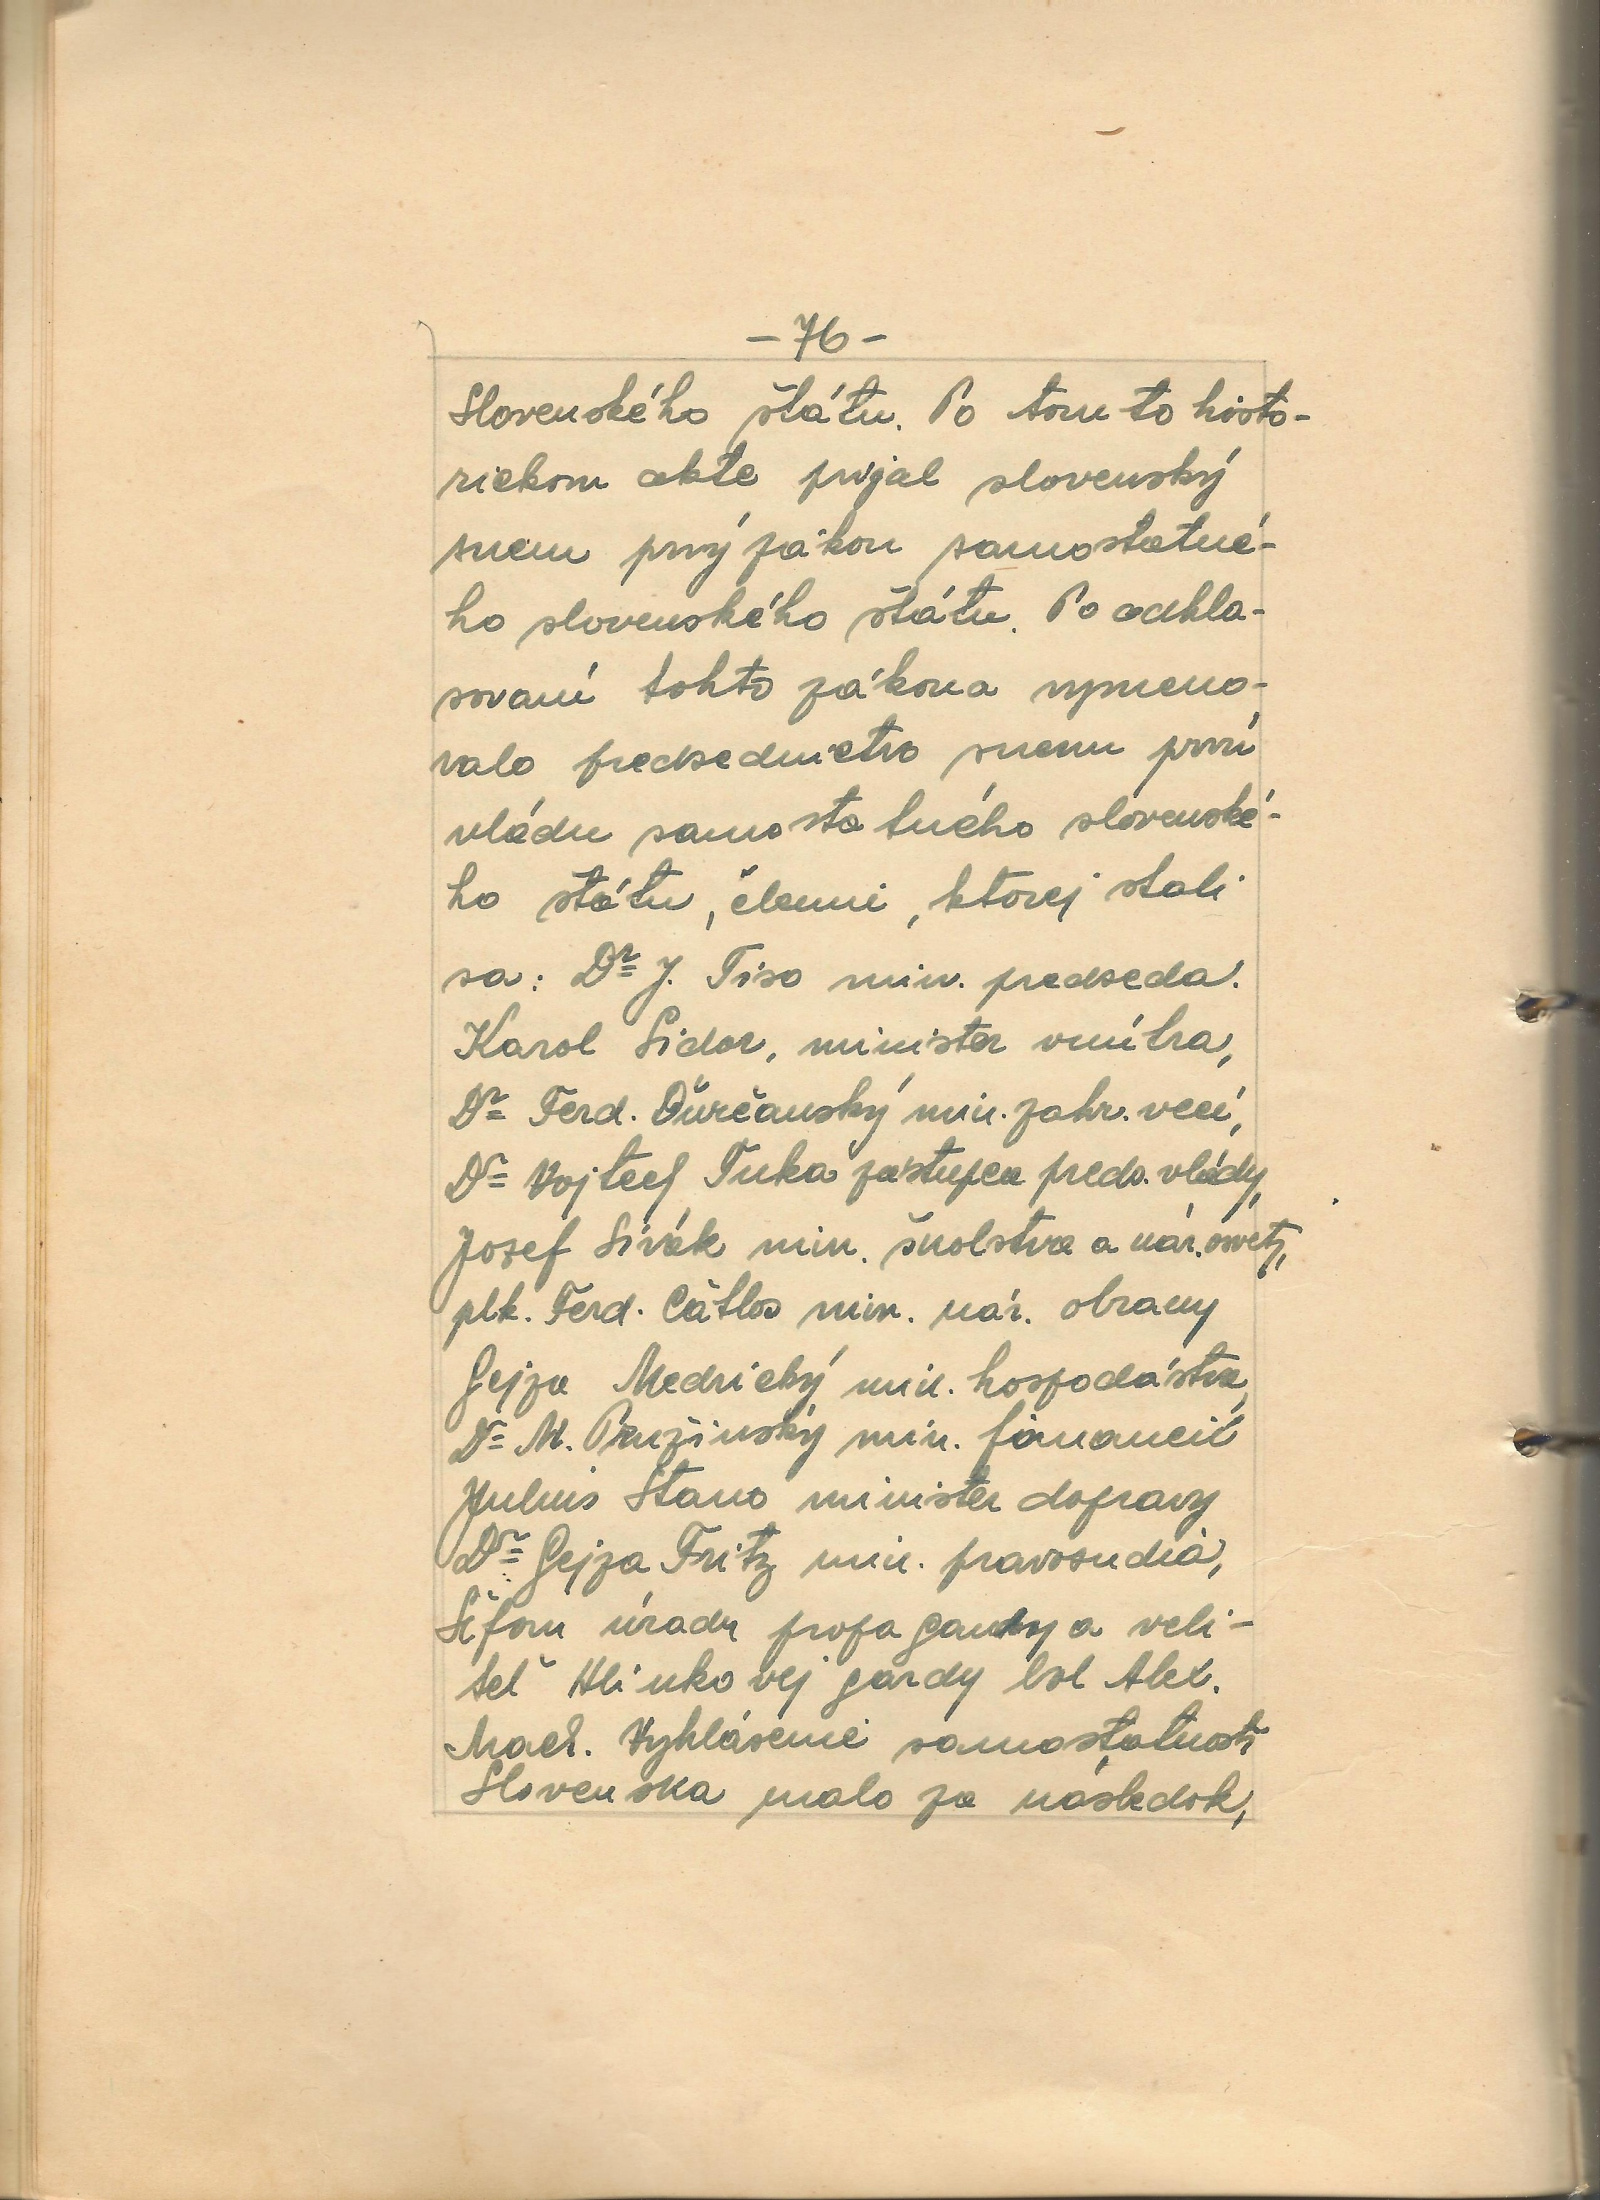 - 76 -
Slovenského štátu. Po tomto histo-
rickom akte prijal slovenský
snem prvý zákon samostatné-
ho slovenského štátu. Po odhla-
sovaní tohto zákona vymeno-
valo predsedníctvo snemu prvú
vládu samostatného slovenské-
ho štátu, členmi, ktorej stali
sa: Dr J. Tiso min. predseda.
Karol Sidor, minister vnútra,
Dr Ferd. Ďurčanský min. zahr. vecí,
Dr Vojtech Tuka zástupca preds. vlády,
Jozef Sivák min. školstva a nár. osvety,
plk. Ferd. Čatloš min. nár. obrany
Gejza Medrický min. hospodástva,
Dr M. Pružinský min. financií
Julius Stano minister dopravy
Dr Gejza Fritz min. pravosudia,
Šéfom úradu propagandy a veli-
teľ Hlinkovej gardy bol Alex.
Mach. Vyhlásenie samostatnosti
Slovenska malo za následok,